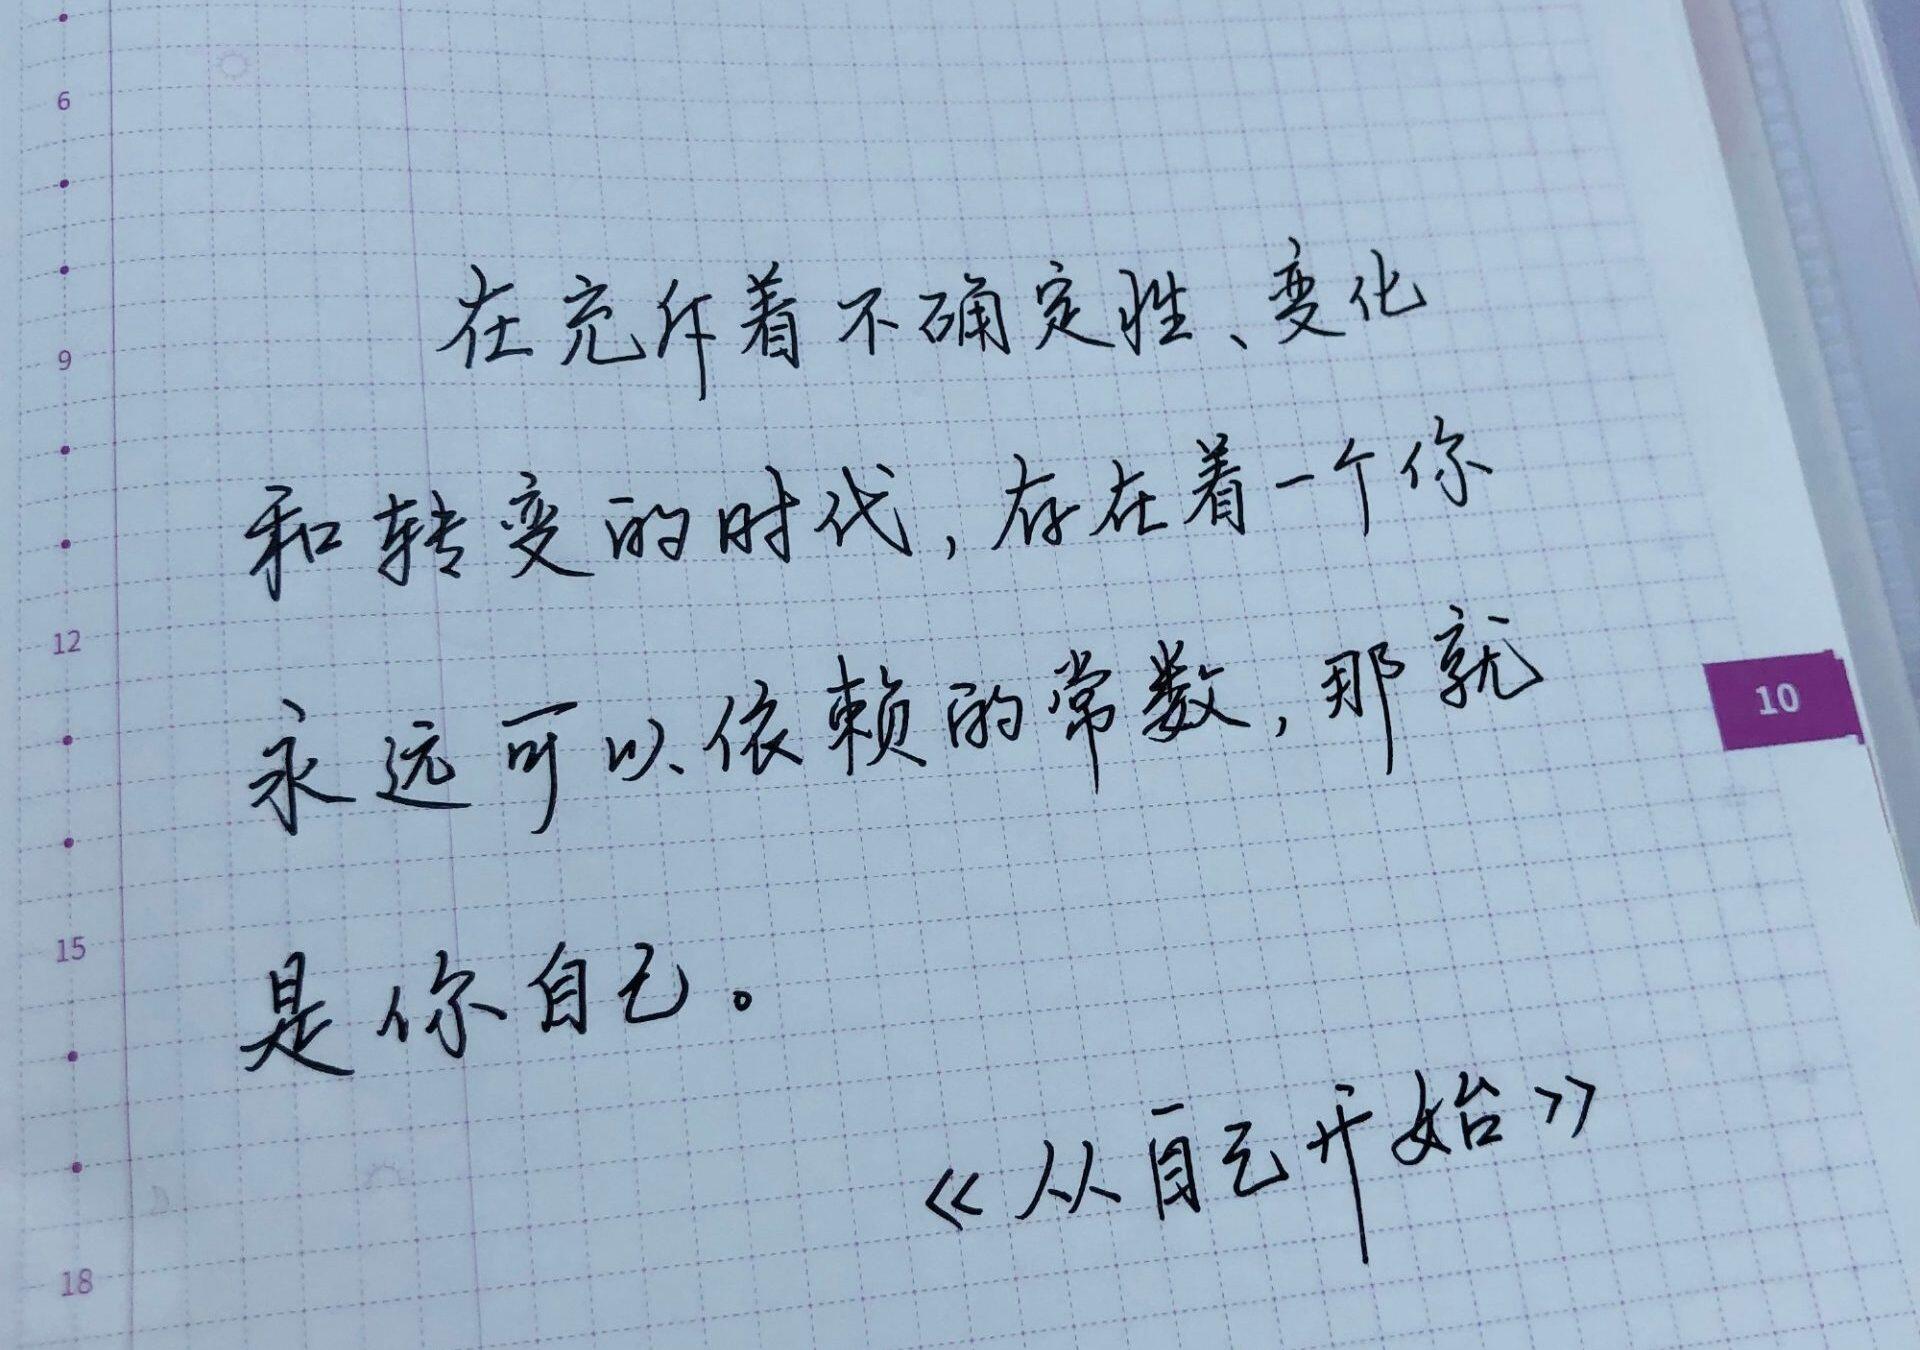 6
在充斥着不确定性、变化
9
和转变的时代,存在着一个你
12
永远可以依赖的常数,那就
10
15
是你自己。
《从自己开始》
18